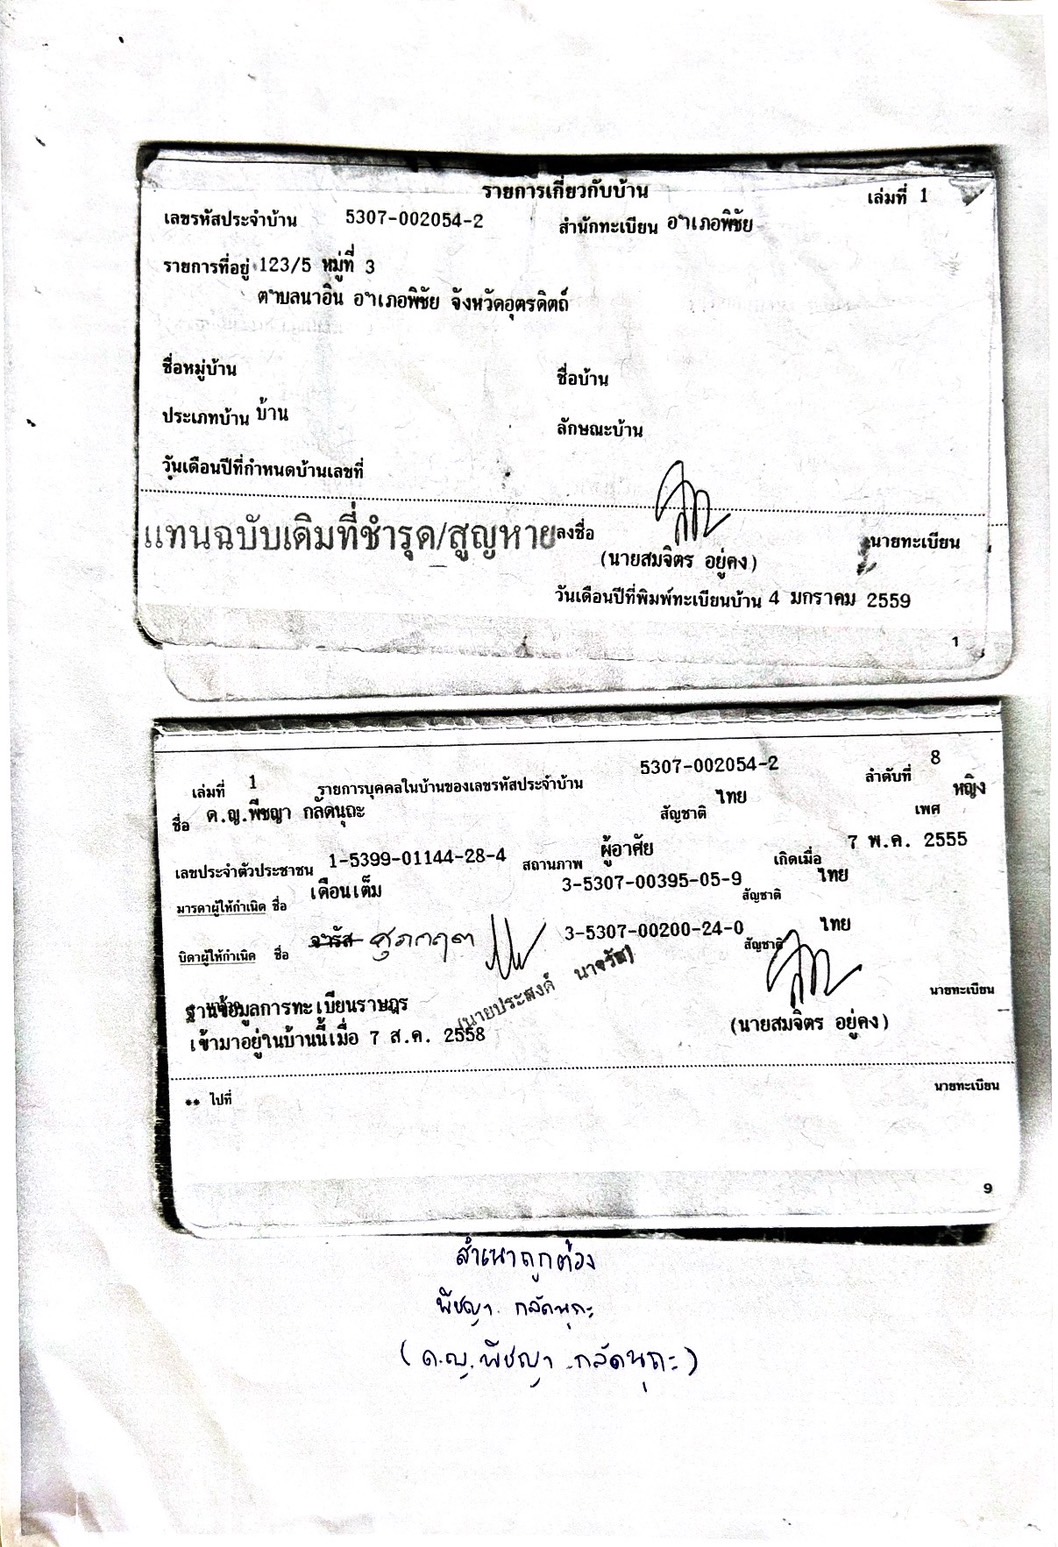 รายการเกี่ยวกับบ้าน เล่มที่ 1
เลขรหัสประจำบ้าน 5307-002054-2 สำนักทะเบียน อำเภอพิชัย
รายการที่อยู่ 123/5 หมู่ที่ 3
ตำบลนาอิน อำเภอพิชัย จังหวัดอุตรดิตถ์
ชื่อหมู่บ้าน ชื่อบ้าน
ประเภทบ้าน บ้าน ลักษณะบ้าน
วันเดือนปีที่กำหนดบ้านเลขที่
แทนฉบับเดิมที่ชำรุด/สูญหาย ลงชื่อ นายทะเบียน
(นายสมจิตร อยู่คง)
วันเดือนปีที่พิมพ์ทะเบียนบ้าน 4 มกราคม 2559
1
เล่มที่ 1 รายการบุคคลในบ้านของเลขรหัสประจำบ้าน 5307-002054-2 ลำดับที่ 8
ชื่อ ด.ญ.พีชญา กลัดนุถะ สัญชาติ ไทย เพศ หญิง
เลขประจำตัวประชาชน 1-5399-01144-28-4 สถานภาพ ผู้อาศัย เกิดเมื่อ 7 พ.ค. 2555
มารดาผู้ให้กำเนิด ชื่อ เดือนเต็ม 3-5307-00395-05-9 สัญชาติ ไทย
บิดาผู้ให้กำเนิด ชื่อ จำรัส ศุภกฤต 3-5307-00200-24-0 สัญชาติ ไทย
(นายประสงค์ นาจวัส)
ฐานข้อมูลการทะเบียนราษฎร นายทะเบียน
เข้ามาอยู่ในบ้านนี้เมื่อ 7 ส.ค. 2558 (นายสมจิตร อยู่คง)
** ไปที่ นายทะเบียน
9
สำเนาถูกต้อง
พีชญา กลัดนุถะ
(ด.ญ.พีชญา กลัดนุถะ)